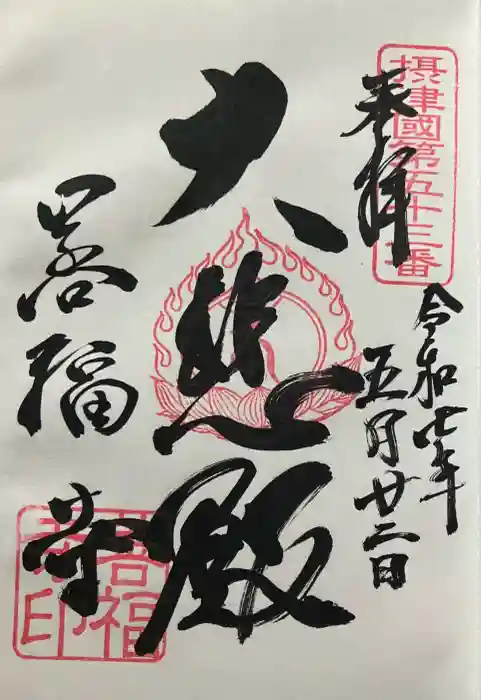 摂津國第五十三番
奉拝
令和七年
五月廿二日
大悲殿
福寺
福
印